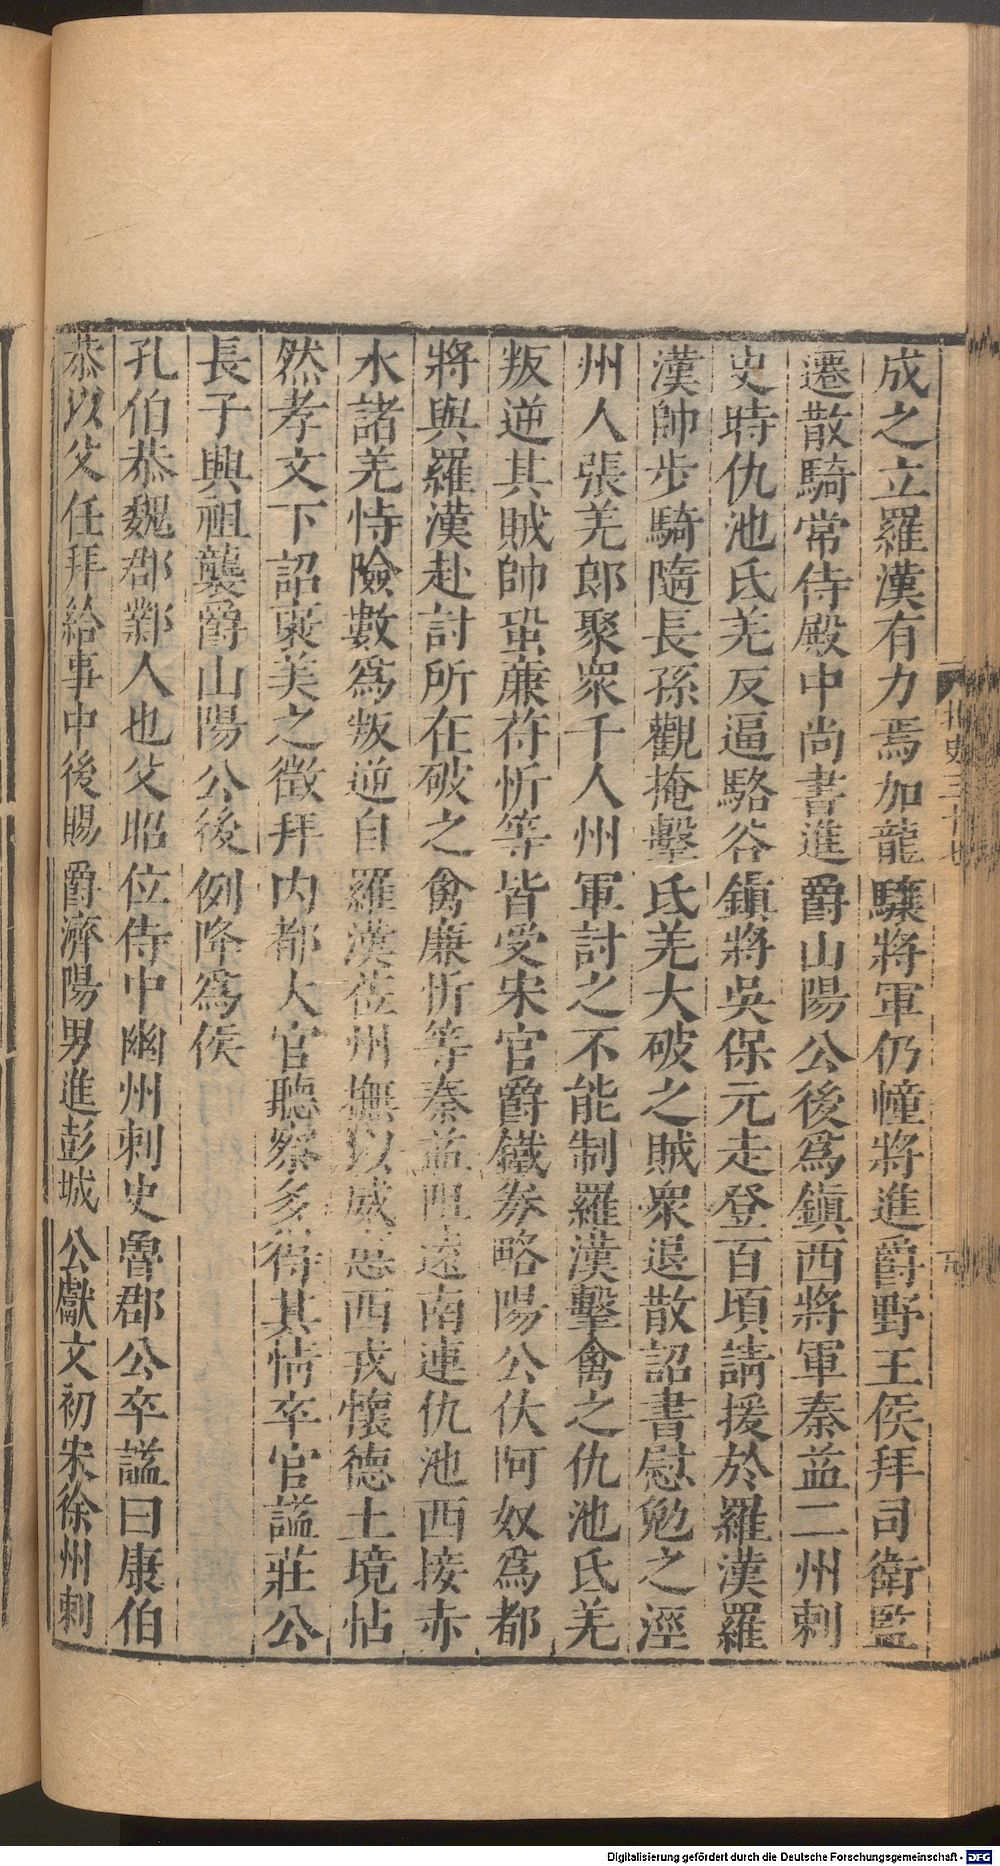 成之立羅漢有力焉加龍驤將軍仍幢將進爵野王侯拜司衛監
遷散騎常侍殿中尚書進爵山陽公後爲鎮西將軍秦益二州刺
史時仇池氐羌反逼駱谷鎮將吳保元走登百頃請援於羅漢羅
漢帥步騎隨長孫觀掩擊氐羌大破之賊衆退散詔書慰勉之涇
州人張羌郎聚衆千人州軍討之不能制羅漢擊禽之仇池氐羌
叛逆其賊帥蛩廉苻忻等皆受宋官爵鐵券略陽公伏阿奴爲都
將與羅漢赴討所在破之禽廉忻等秦益阻遠南連仇池西接赤
水諸羌恃險數爲叛逆自羅漢莅州撫以威惠西戎懷德土境帖
然孝文下詔襃美之徵拜内都大官聽察多得其情卒官謚莊公
長子興祖襲爵山陽公後例降爲侯
孔伯恭魏郡鄴人也父昭位侍中幽州刺史魯郡公卒謚曰康伯
恭以父任拜給事中後賜爵濟陽男進彭城公獻文初宋徐州刺
北史三十七
Digitalisierung gefördert durch die Deutsche Forschungsgemeinschaft - DFG